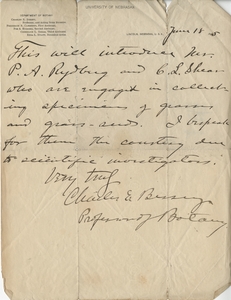 DEPARTMENT OF BOTANY
UNIVERSITY OF NEBRASKA
June 18
This will introduce Mr.
P. A. Rydberg and C. L. Shear
who are engaged in collect-
ing specimens of grasses
and grass-seeds. I bespeak
for them the courtesy due
to scientific investigators.
Very truly
Charles E. Bessey
Professor of Botany